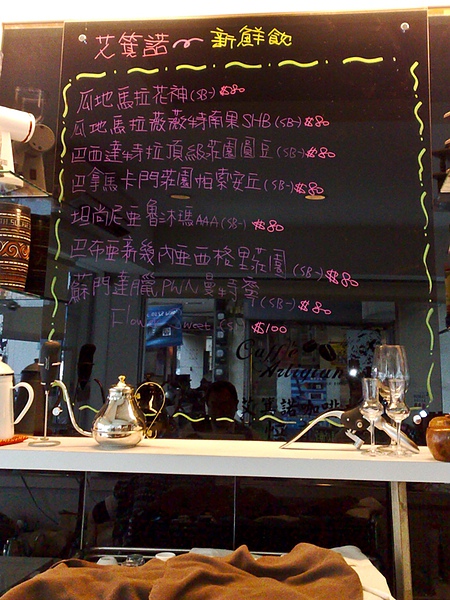 艾箕諾~ 新鮮飲
瓜地馬拉花神(SB-) $80
瓜地馬拉薇薇特南果SHB(SB-) $80
巴西達特拉頂級莊園圓豆(SB-) $80
巴拿馬卡門莊園帕索安丘(SB-) $80
坦尚尼亞魯冰瑪AAA(SB-) $80
巴布亞新幾內亞西格里莊園(SB-) $80
蘇門達臘PWN曼特寧(SB-) $80
Sweet $100
Caffè
Artigiano
諾咖啡